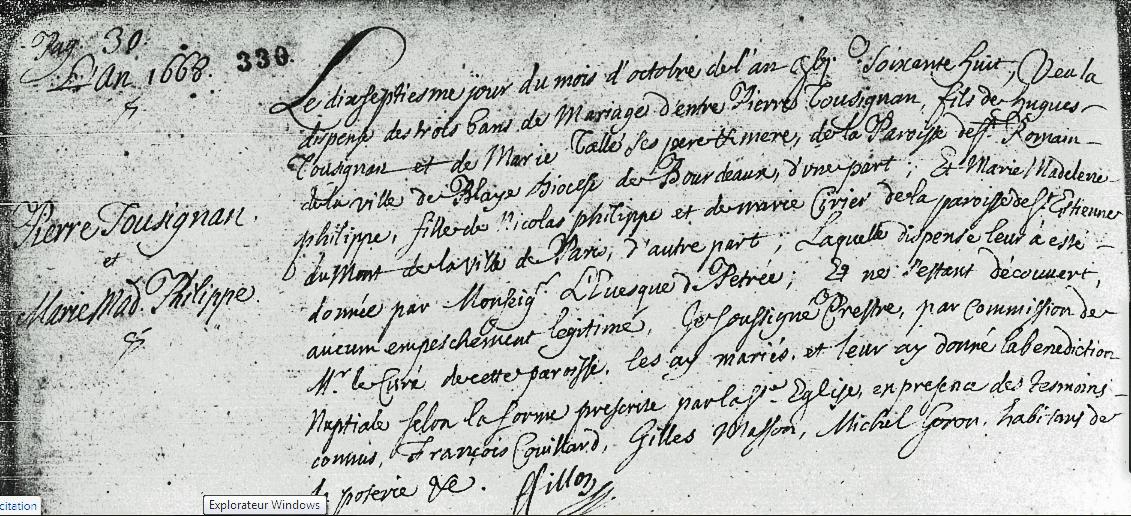 Pag. 30.
L'An 1668.
330.
Le dixseptiesme jour du mois d'octobre de l'an Soixante huit, Veu la
dispense des trois bans de Mariage d'entre Pierre Tousignan, fils de hugues
Tousignan et de Marie Tallé ses pere & mere, de la Paroisse de St. Romain
de la ville de Blaye Diocese de Bourdeaux, d'une part ; Et Marie Madelene
philippe, fille de Nicolas philippe et de marie Cirier de la paroisse de St. Estienne
du Mont de la ville de Paris, d'autre part ; Laquelle dispense leur a esté
donnée par Monseigr. L'Evesque de Petrée ; Et ne s'estant découvert,
aucum empeschement legitime, Je soussigné Prestre, par commission de
Mr. le Curé de cette paroisse, les ay mariés, et leur ay donné la benediction
Nuptiale selon la forme prescrite par la Ste. Eglise, en presence des tesmoins
connus, François Couillard, Gilles Masson, Michel Goron, habitans de
la poterie &c. ffillon
Pierre Tousignan.
et
Marie Mad. Philippe.
citation
Explorateur Windows